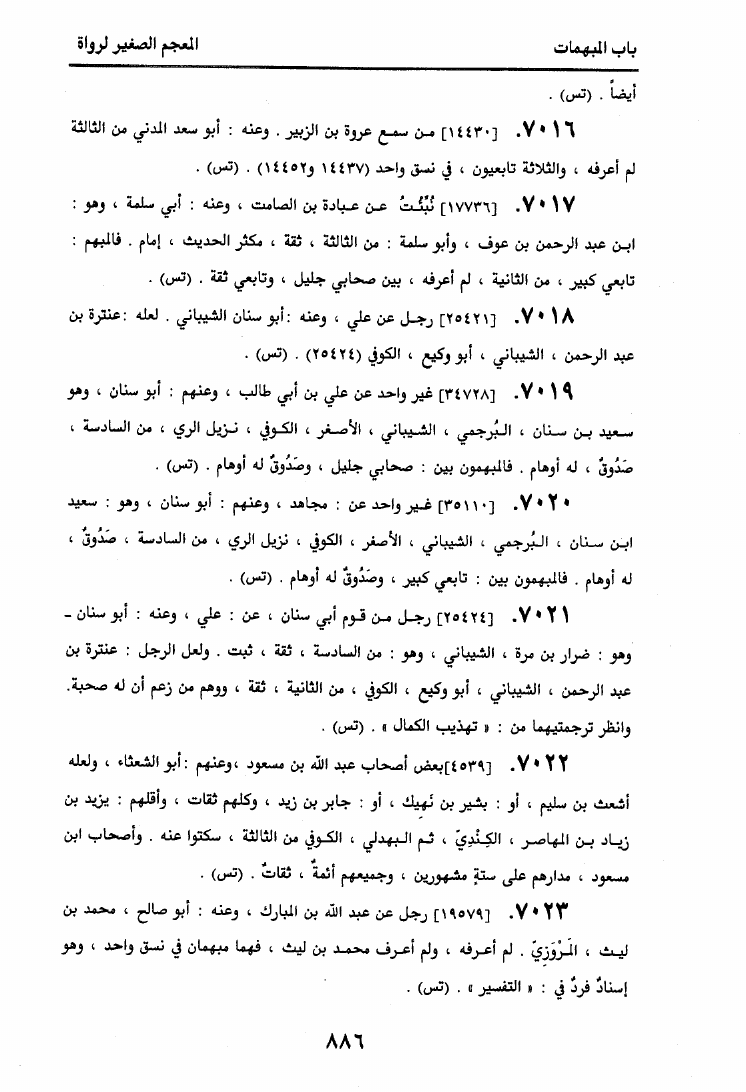 باب المبهمات
المعجم الصغير لرواة
أيضاً . (تس) .
٧٠١٦. [١٤٤٣٠] من سمع عروة بن الزبير . وعنه : أبو سعد المدني من الثالثة
لم أعرفه ، والثلاثة تابعيون ، في نسق واحد (١٤٤٣٧ و١٤٤٥٢) . (تس) .
٧٠١٧. [١٧٧٣٦] نُبِّئتُ عن عبادة بن الصامت ، وعنه : أبي سلمة ، وهو :
ابن عبد الرحمن بن عوف ، وأبو سلمة : من الثالثة ، ثقة ، مكثر الحديث ، إمام . فالمبهم :
تابعي كبير ، من الثانية ، لم أعرفه ، بين صحابي جليل ، وتابعي ثقة . (تس) .
٧٠١٨. [٢٥٤٢١] رجل عن علي ، وعنه :أبو سنان الشيباني . لعله :عنترة بن
عبد الرحمن ، الشيباني ، أبو وكيع ، الكوفي (٢٥٤٢٤) . (تس) .
٧٠١٩. [٣٤٧٢٨] غير واحد عن علي بن أبي طالب ، وعنهم : أبو سنان ، وهو
سعيد بن سنان ، البُرجمي ، الشيباني ، الأصغر ، الكوفي ، نزيل الري ، من السادسة ،
صَدُوقٌ ، له أوهام . فالمبهمون بين : صحابي جليل ، وصَدُوقٌ له أوهام . (تس) .
٧٠٢٠. [٣٥١١٠] غير واحد عن : مجاهد ، وعنهم : أبو سنان ، وهو : سعيد
ابن سنان ، البُرجمي ، الشيباني ، الأصغر ، الكوفي ، نزيل الري ، من السادسة ، صَدُوقٌ ،
له أوهام . فالمبهمون بين : تابعي كبير ، وصَدُوقٌ له أوهام . (تس) .
٧٠٢١. [٢٥٤٢٤] رجل من قوم أبي سنان ، عن : علي ، وعنه : أبو سنان -
وهو : ضرار بن مرة ، الشيباني ، وهو : من السادسة ، ثقة ، ثبت . ولعل الرجل : عنترة بن
عبد الرحمن ، الشيباني ، أبو وكيع ، الكوفي ، من الثانية ، ثقة ، ووهم من زعم أن له صحبة.
وانظر ترجمتيهما من : « تهذيب الكمال » . (تس) .
٧٠٢٢. [٤٥٣٩]بعض أصحاب عبد الله بن مسعود ،وعنهم :أبو الشعثاء ، ولعله
أشعث بن سليم ، أو : بشير بن نَهِيك ، أو : جابر بن زيد ، وكلهم ثقات ، وأقلهم : يزيد بن
زياد بن المهاصر ، الكِنْدِيّ ، ثم البهدلي ، الكوفي من الثالثة ، سكتوا عنه . وأصحاب ابن
مسعود ، مدارهم على ستةٍ مشهورين ، وجميعهم أئمةٌ ، ثقاتٌ . (تس) .
٧٠٢٣. [١٩٥٧٩] رجل عن عبد الله بن المبارك ، وعنه : أبو صالح ، محمد بن
ليث ، المَرْوَزِيّ . لم أعرفه ، ولم أعرف محمد بن ليث ، فهما مبهمان في نسق واحد ، وهو
إسنادٌ فردٌ في : « التفسير » . (تس) .
٨٨٦